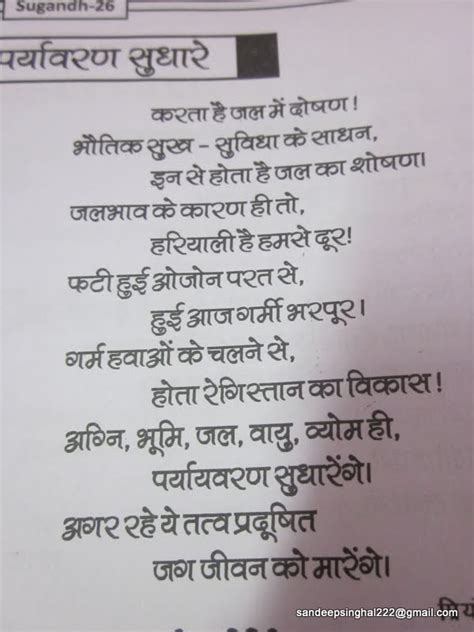 Sugandh-26
पर्यावरण सुधारे
करता है जल में दोषण!
भौतिक सुख - सुविधा के साधन,
इन से होता है जल का शोषण।
जलभाव के कारण ही तो,
हरियाली है हमसे दूर!
फटी हुई ओजोन परत से,
हुई आज गर्मी भरपूर।
गर्म हवाओं के चलने से,
होता रेगिस्तान का विकास!
अग्नि, भूमि, जल, वायु, व्योम ही,
पर्यायवरण सुधारेंगे।
अगर रहे ये तत्व प्रदूषित
जग जीवन को मारेंगे।
sandeepsinghal222@gmail.com